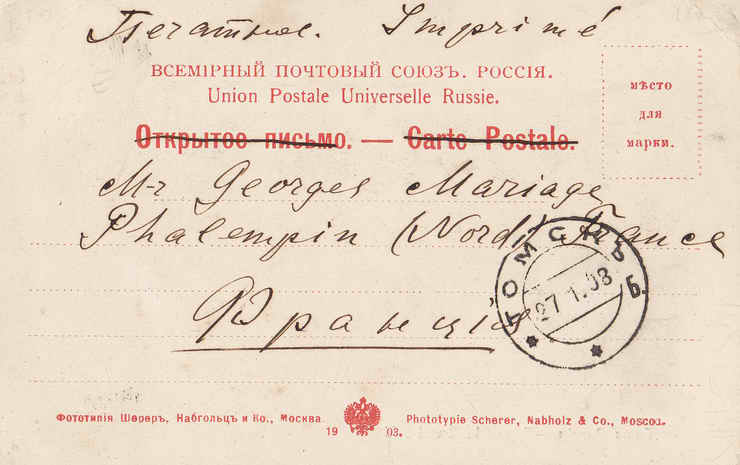 Печатное. Imprimé
ВСЕМІРНЫЙ ПОЧТОВЫЙ СОЮЗЪ. РОССІЯ.
Union Postale Universelle Russie.
МѢСТО
ДЛЯ
МАРКИ.
Открытое письмо. — Carte Postale.
M-r Georges Mariage
Phalempin (Nord) France
Франція
ТОМСКЪ Б.
27.1.03
Фототипія Шереръ, Набгольцъ и Ко., Москва.
Phototypie Scherer, Nabholz & Co., Moscou.
1903.